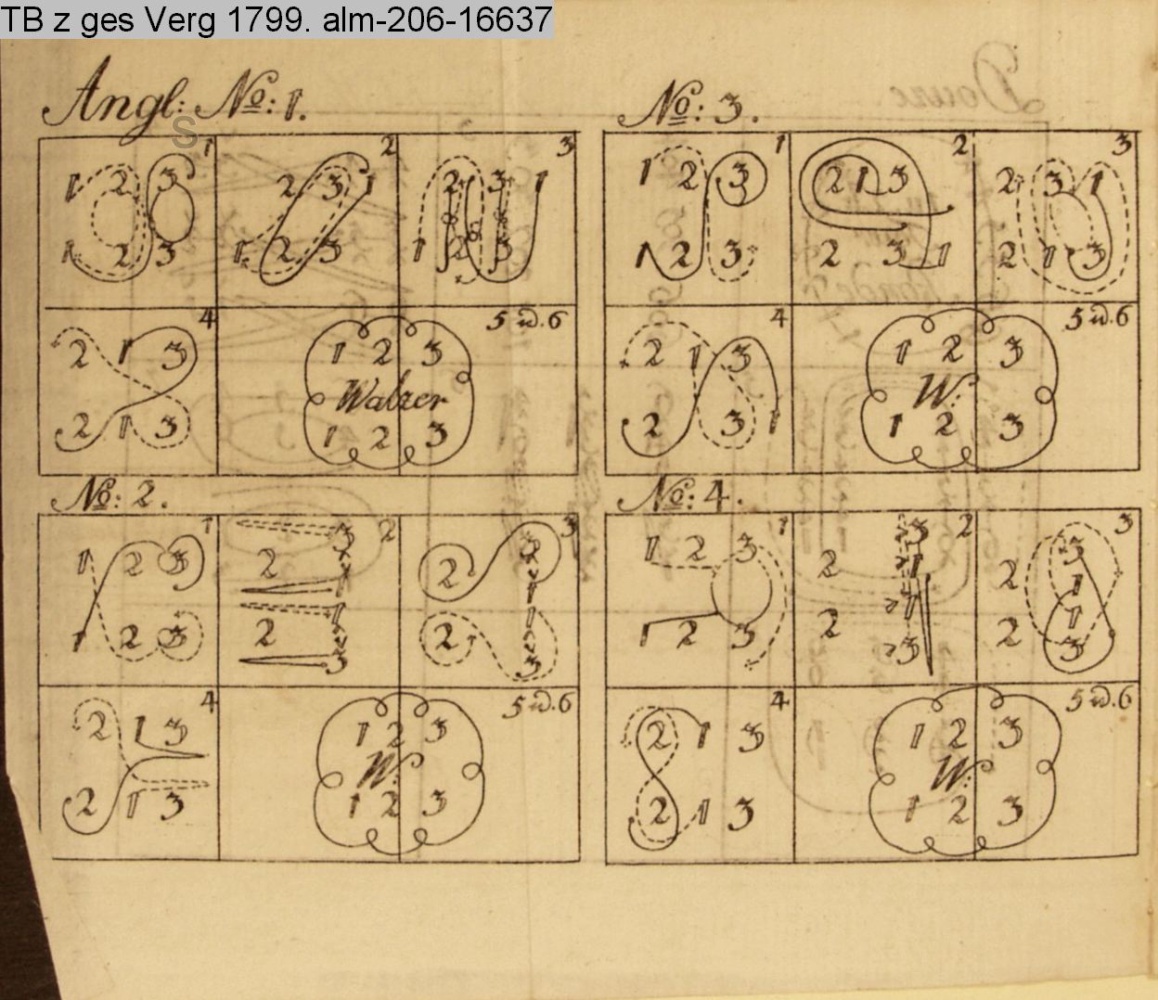 TB z ges Verg 1799. alm-206-16637
Angl: No: 1.
S
1
1 2 3
1 2 3
2
2 3 1
1 2 3
3
2 3 1
1 2 3
4
2 1 3
2 1 3
5 u. 6
1 2 3
Walzer
1 2 3
No: 3.
1
1 2 3
1 2 3
2
2 1 3
2 3 1
3
2 3 1
2 1 3
4
2 1 3
2 3 1
5 u. 6
1 2 3
W:
1 2 3
No: 2.
1
1 2 3
1 2 3
2
3
2 1
1
2 3
3
3
2 1
1
2 3
4
2 1 3
2 1 3
5 u. 6
1 2 3
W:
1 2 3
No: 4.
1
1 2 3
1 2 3
2
3
2 1
1
2 3
3
3
2 1
1
2 3
4
2 1 3
2 1 3
5 u. 6
1 2 3
W:
1 2 3